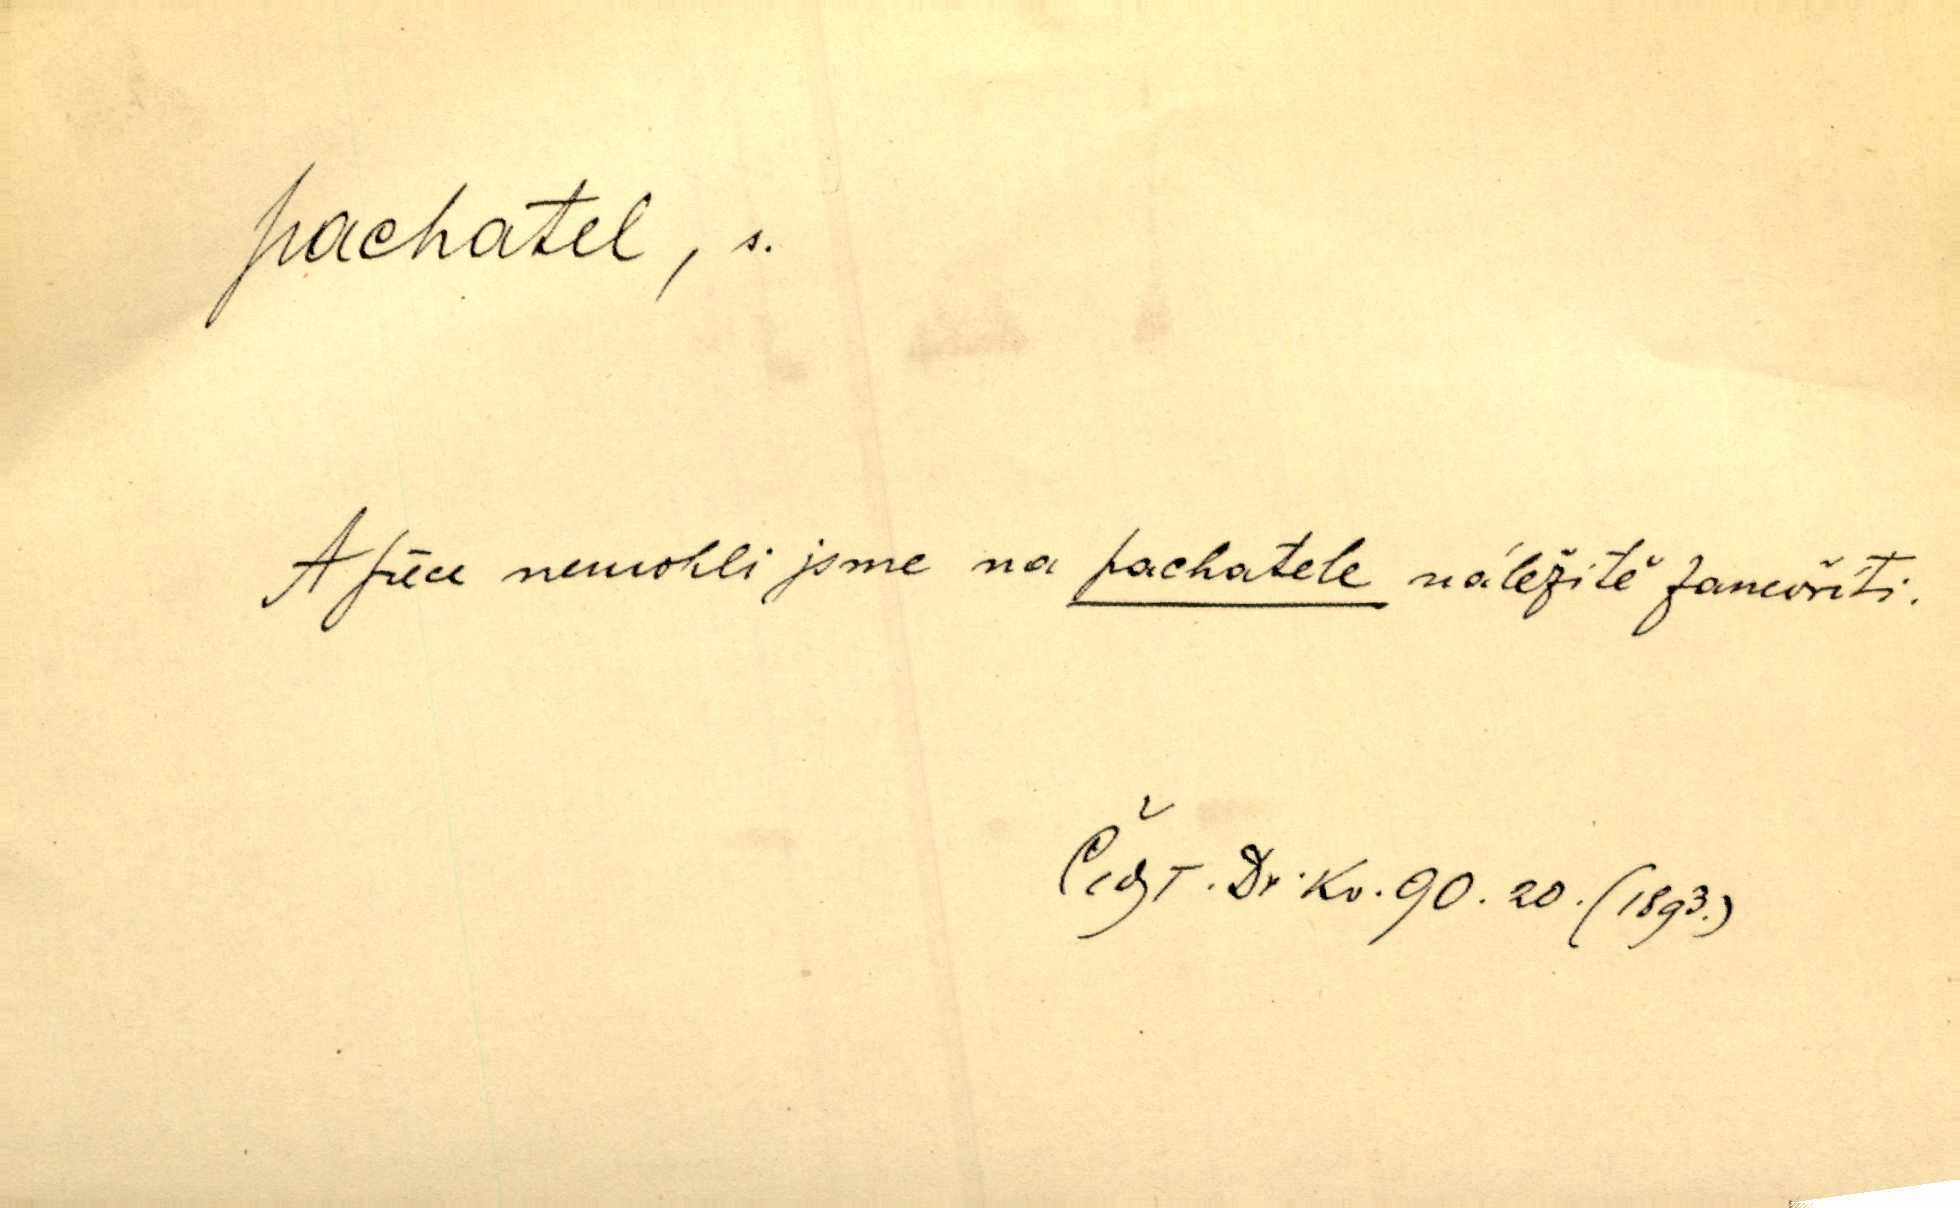 pachatel, s.
A přece nemohli jsme na pachatele náležitě zanevříti.
Dr. Kv. 90. 20. (1893.)